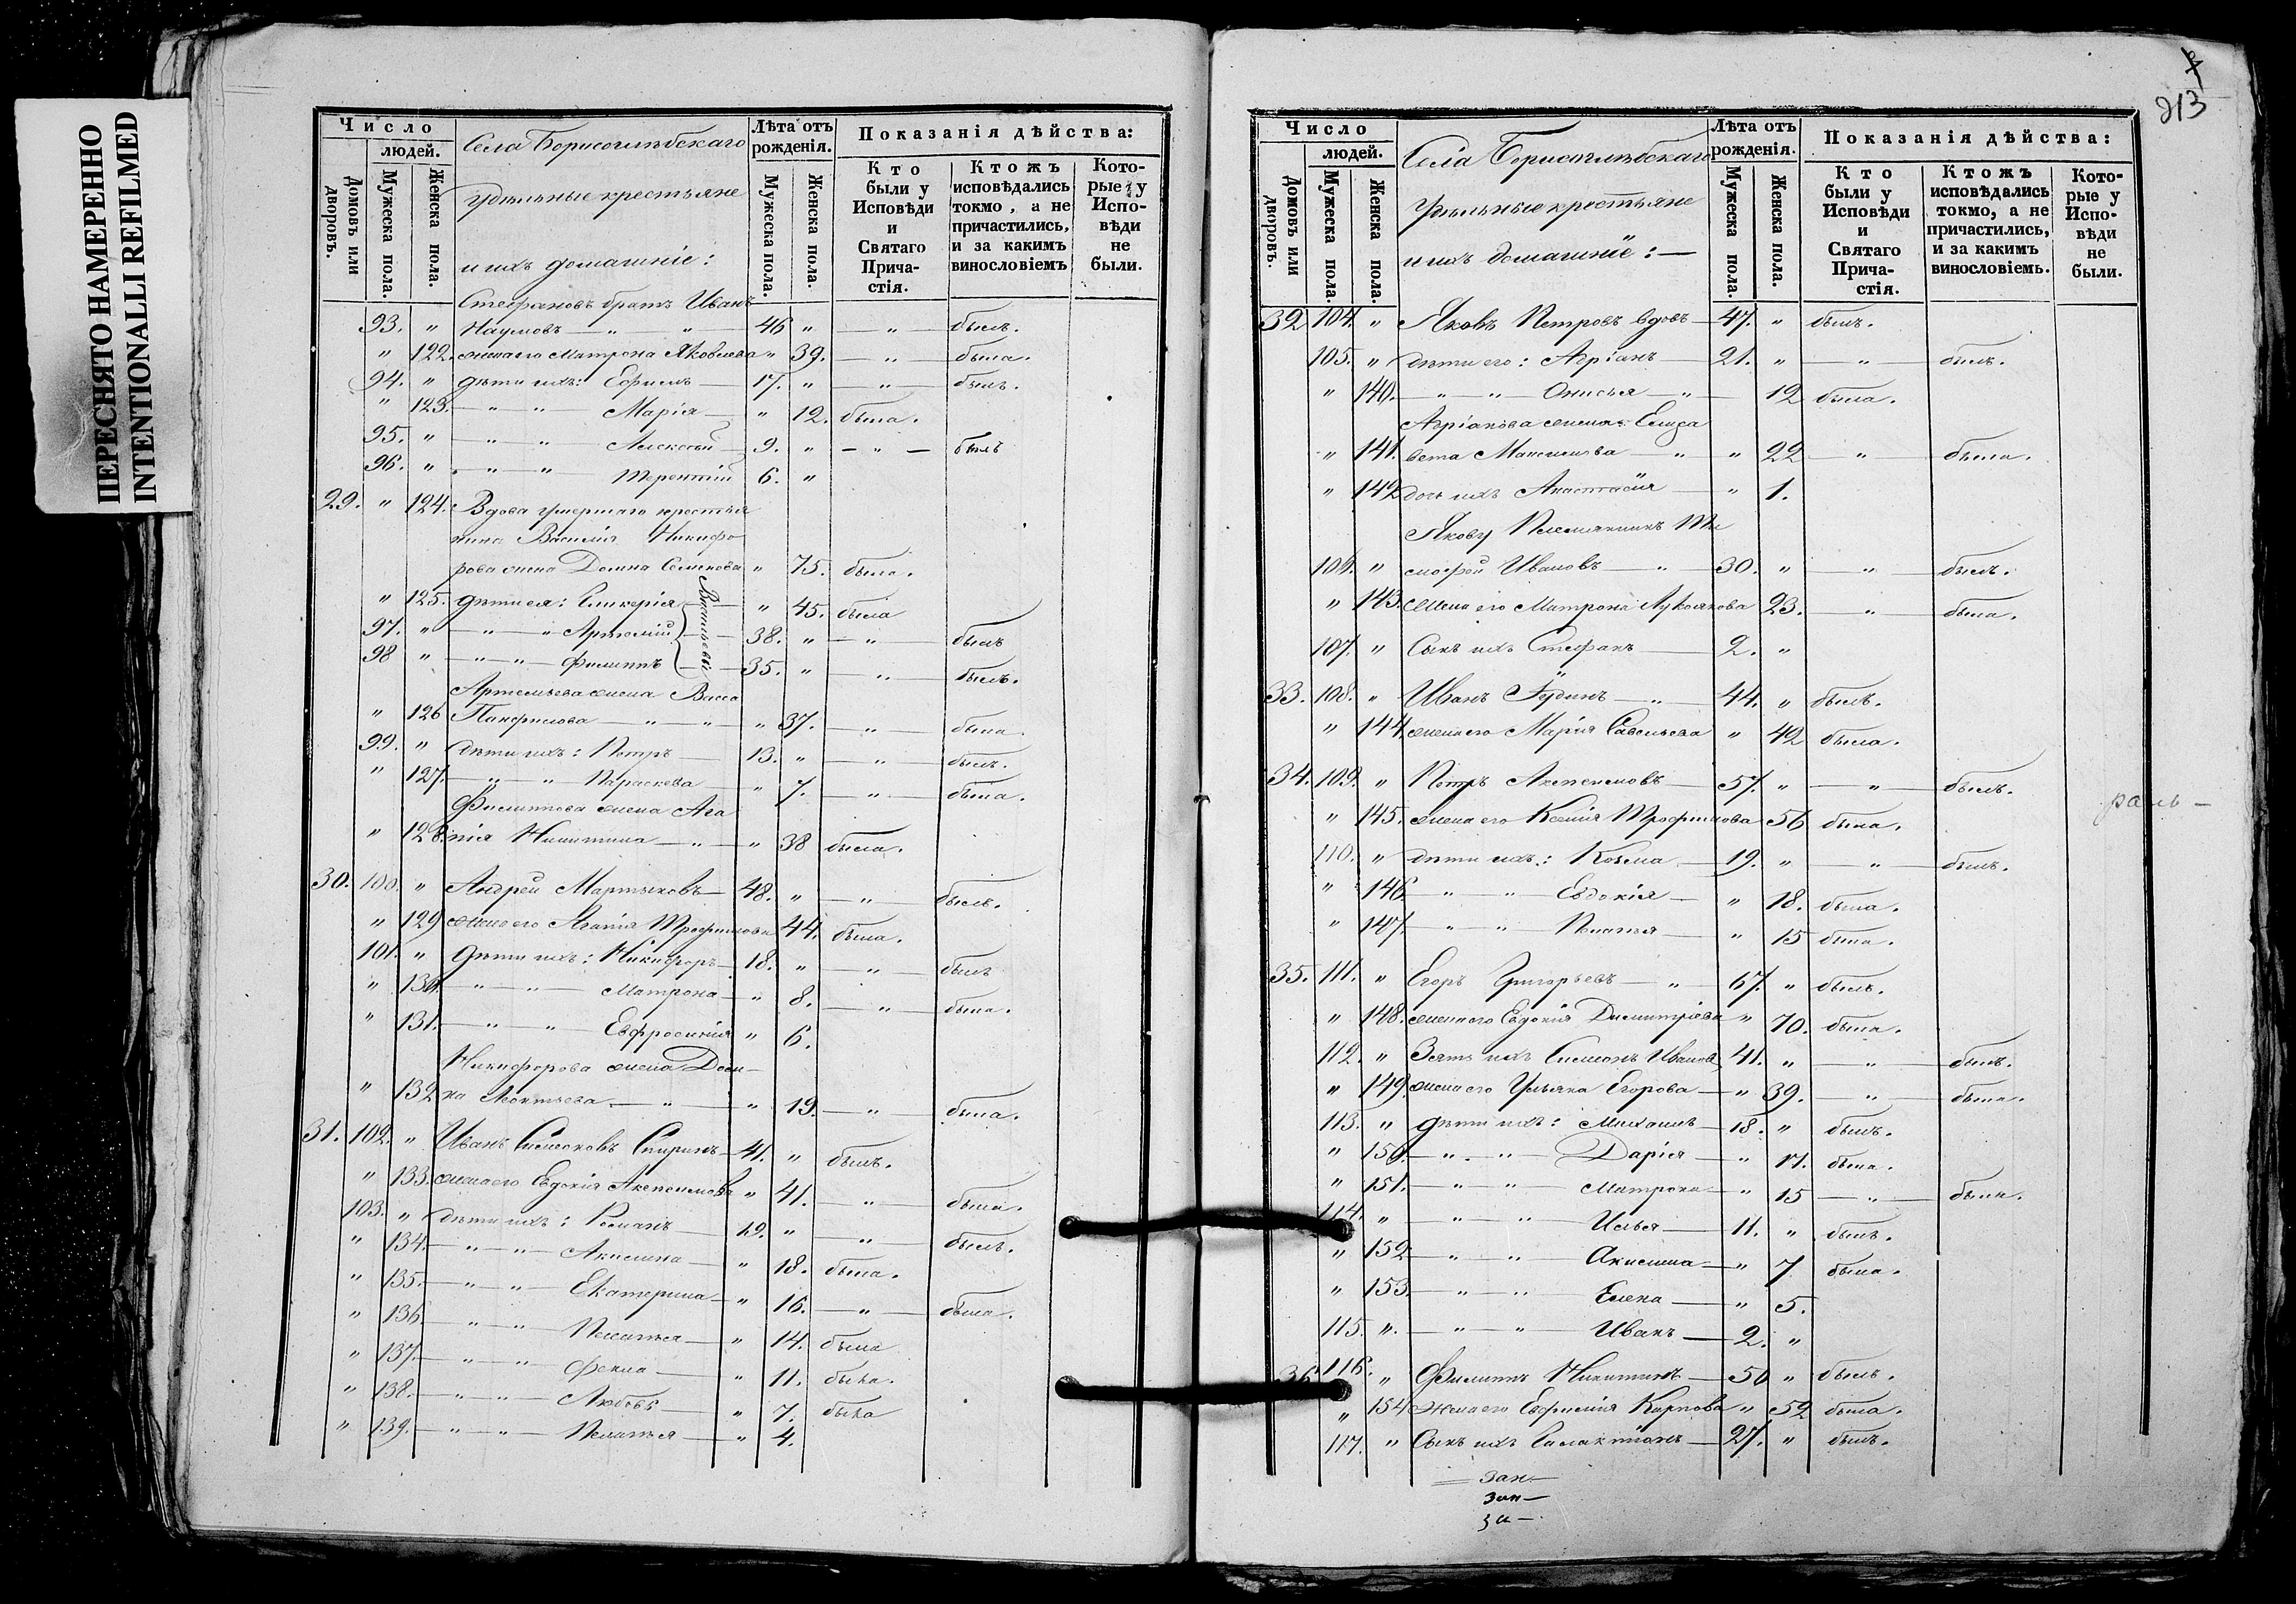 ПЕРЕСНЯТО НАМЕРЕННО
INTENTIONALLI REFILMED
Число
людей.
Домовъ или дворовъ.
Мужеска пола.
Женска пола.
Села Борисоглѣбскаго
удѣльные крестьяне
и ихъ домашніе:
Лѣта отъ рожденія.
Мужеска пола.
Женска пола.
Показанія дѣйства:
Кто были у Исповѣди и Святаго Прича-стія.
Ктожъ исповѣдались токмо, а не причастились, и за какимъ винословіемъ
Кото-рые у Испо-вѣди не были.
Стефановъ братъ Иванъ
93. " Наумовъ — " " 46 " — " былъ.
" 122. жена его Матрона Яковлева " 39. — " — была.
94. " дѣти ихъ: Ефимъ — 17. " — " — былъ.
" 123. — " — " — Марія — " 12. была.
95. " — " — " — Алексѣй — 9. " — " — былъ
96. " — " — " — Терентій 6. "
29. " 124. Вдова умершаго крестья
нина Василія Никифо
рова жена Домна Семенова " 75. была.
" 125. дѣти ея: Гликерія — " 45. была
97. " — " — " Артемій — 38. " — " — былъ
98 " — " — " — Филиппъ — 35. " — " — былъ.
Васильевы
Артемьева жена Васса
" 126 Панфилова — " — " — " 37. — " — была.
99. " дѣти ихъ: Петръ — 13. " — " — былъ.
" 127. — " — " — Параскева — " 7. — " — была.
Филиппова жена Ага
" 128. пія Никитина — " — " 38 была.
30. 100. " Андрей Мартыновъ — 48. " — " — былъ.
" 129 жена его Агапія Трофимова 44. была.
101. " дѣти ихъ: Никифоръ — 18. " — " — былъ
" 130. — " — " — Матрона — " 8. — " — была.
" 131. — " — " — Евфросинія " 6.
Никифорова жена Дом-
" 132 на Леонтьева — " — " 19. — " — была.
31. 102. " Иванъ Симеоновъ Спиринъ — 41. " былъ.
" 133. жена его Евдокія Акепсимова " 41. — " — была.
103. " дѣти ихъ: Романъ — 19. " — " — былъ.
" 134. — " — " — Акилина — " 18. была.
" 135. — " — " — Екатерина — " 16. — " — была.
" 136. — " — " — Пелагья — " 14. была
" 137. — " — " — Фекла — " 11. была.
" 138. — " — " — Любовь — " 7. была
" 139. — " — " — Пелагья — " 4.
213
Число
людей.
Домовъ или дворовъ.
Мужеска пола.
Женска пола.
Села Борисоглѣбскаго
Удѣльные крестьяне
и ихъ домашніе: —
Лѣта отъ рожденія.
Мужеска пола.
Женска пола.
Показанія дѣйства:
Кто были у Исповѣди и Святаго Прича-стія.
Ктожъ исповѣдались токмо, а не причастились, и за какимъ винословіемъ.
Кото-рые у Испо-вѣди не были.
32 104. " Яковъ Петровъ вдовъ — 47. " былъ.
105. " дѣти его: Адріанъ — 21. " — " — былъ.
" 140. — " — " — Онисья — " — 12 была.
Адріанова жена: Елиза
" 141. вета Максимова — " " 22 — " — была.
" 142 дочь ихъ Анастасія — " 1.
Якову Племянникъ Ти
106. " мофей Ивановъ — " — 30. " — " — былъ.
" 143. Жена его Матрона Лукьянова 23. — " — была.
107. " Сынъ ихъ Стефанъ — 2. "
33. 108. " Иванъ Юдинъ — " — 44. " былъ.
" 144. жена его Марія Савельева " 42 была.
34. 109. " Петръ Акепсимовъ — 57. " — " — былъ.
" 145. жена его Ксенія Трофимова 56 была.
110. " дѣти ихъ: Козьма — 19. " — " — былъ.
" 146 — " — " — Евдокія — " 18. была.
" 147. — " — " — Пелагья — " 15 была.
35. 111. " Егоръ Григорьевъ — " — 67. " былъ.
" 148. жена его Евдокія Димитріева " 70. была.
112. " Зять ихъ Симеонъ Ивановъ 41. " — " — былъ.
" 149. жена его Ульяна Егорова — " 39. — " — была.
113. " дѣти ихъ: Михаилъ — 18. " былъ.
" 150. — " — " — Дарія — " 17. была.
" 151. — " — " — Матрона — " 15 — " — была.
114. " — " — " — Илья — 11. " былъ.
" 152 — " — " — Акилина — " 7 была.
" 153. — " — " — Елена — " 5.
115. " — " — " — Иванъ — 2. "
36. 116. " Филиппъ Никитинъ — 50 " былъ.
" 154 Жена его Евфимія Карпова " 52 была.
117. " Сынъ ихъ Галактіонъ — 27. " былъ.